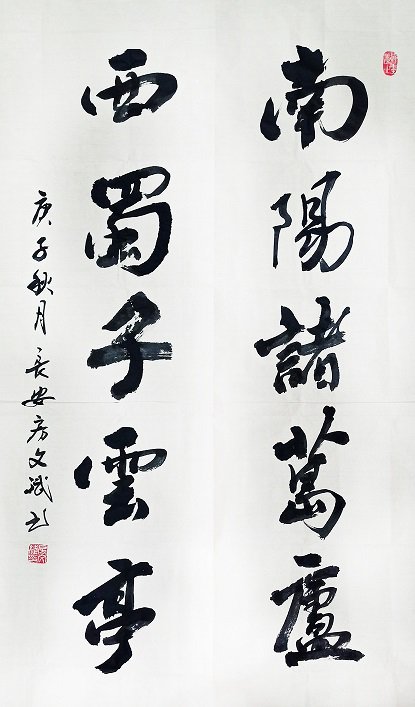 南陽諸葛廬
西蜀子雲亭
庚子秋月長安房文斌书